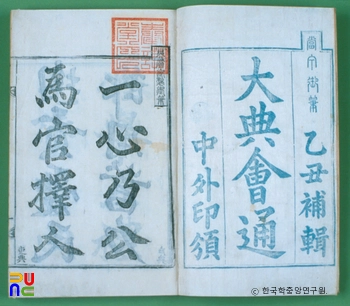 乙丑補輯
大典會通
中外印頒
一心乃公
爲官擇人
ⓒ한국학중앙연구원